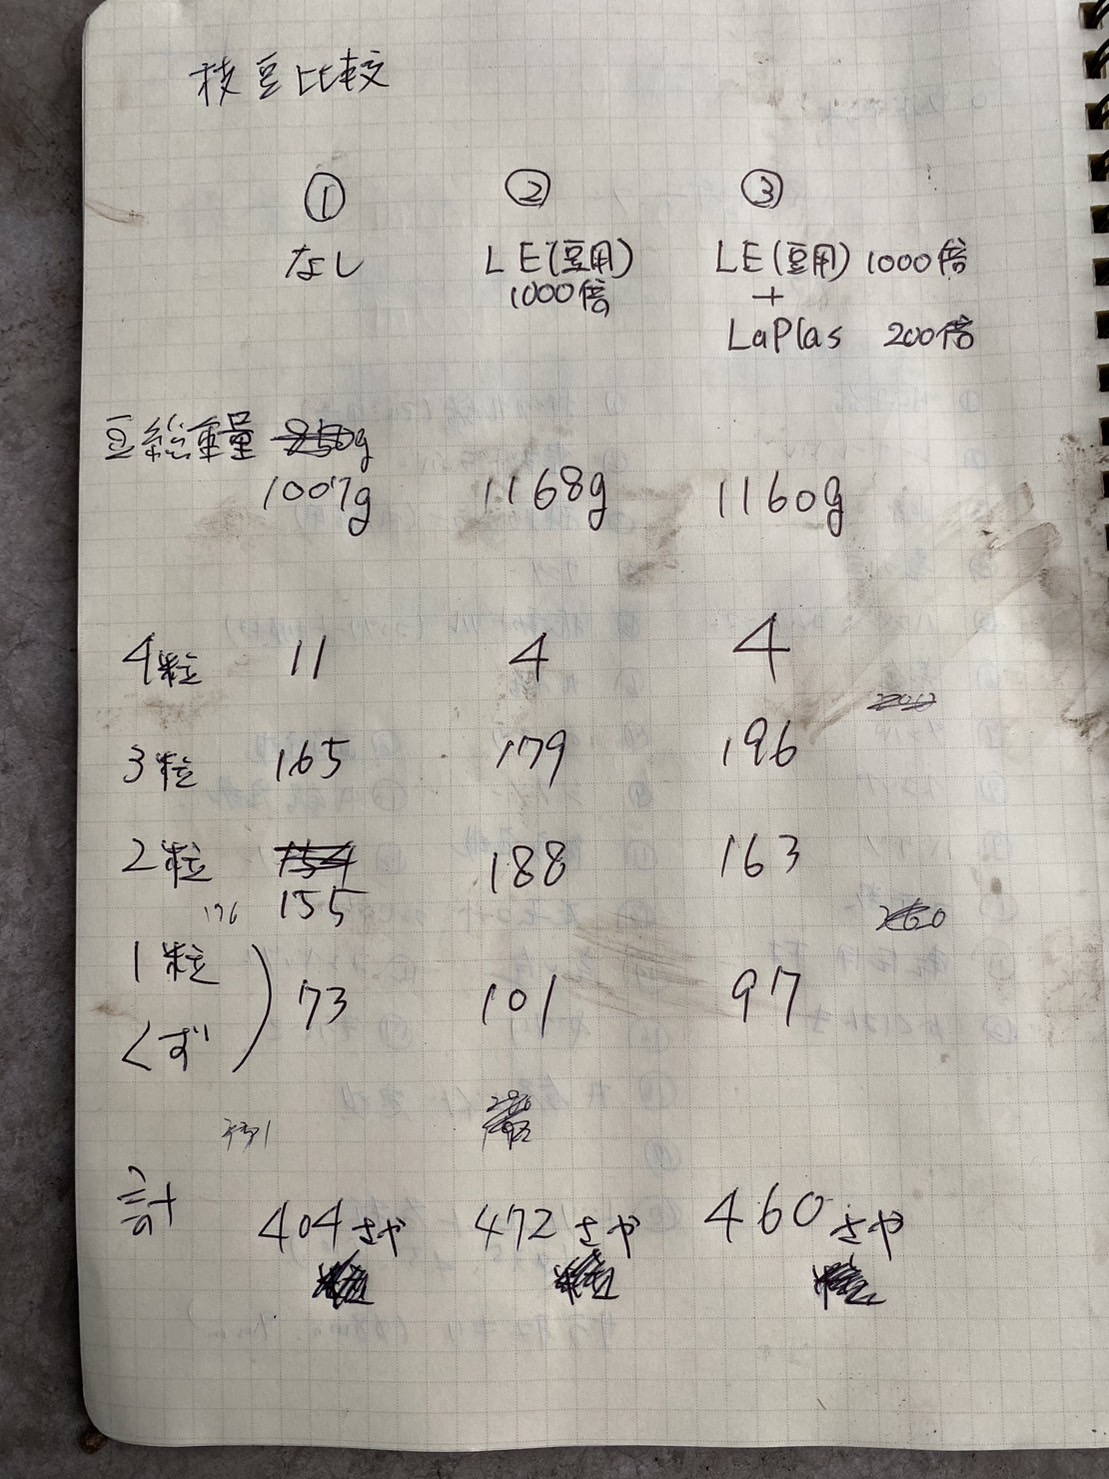 枝豆比較
① ② ③
なし LE(豆用) 1000倍 LE(豆用) 1000倍
+
LaPlas 200倍
豆総重量 850g
1007g 1168g 1160g
4粒 11 4 4
3粒 165 179 196
2粒 154 188 163
176 155
1粒
くず 73 101 97
計 404さや 472さや 460さや